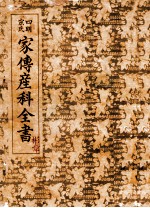 四明
宋氏
家傳産科全書